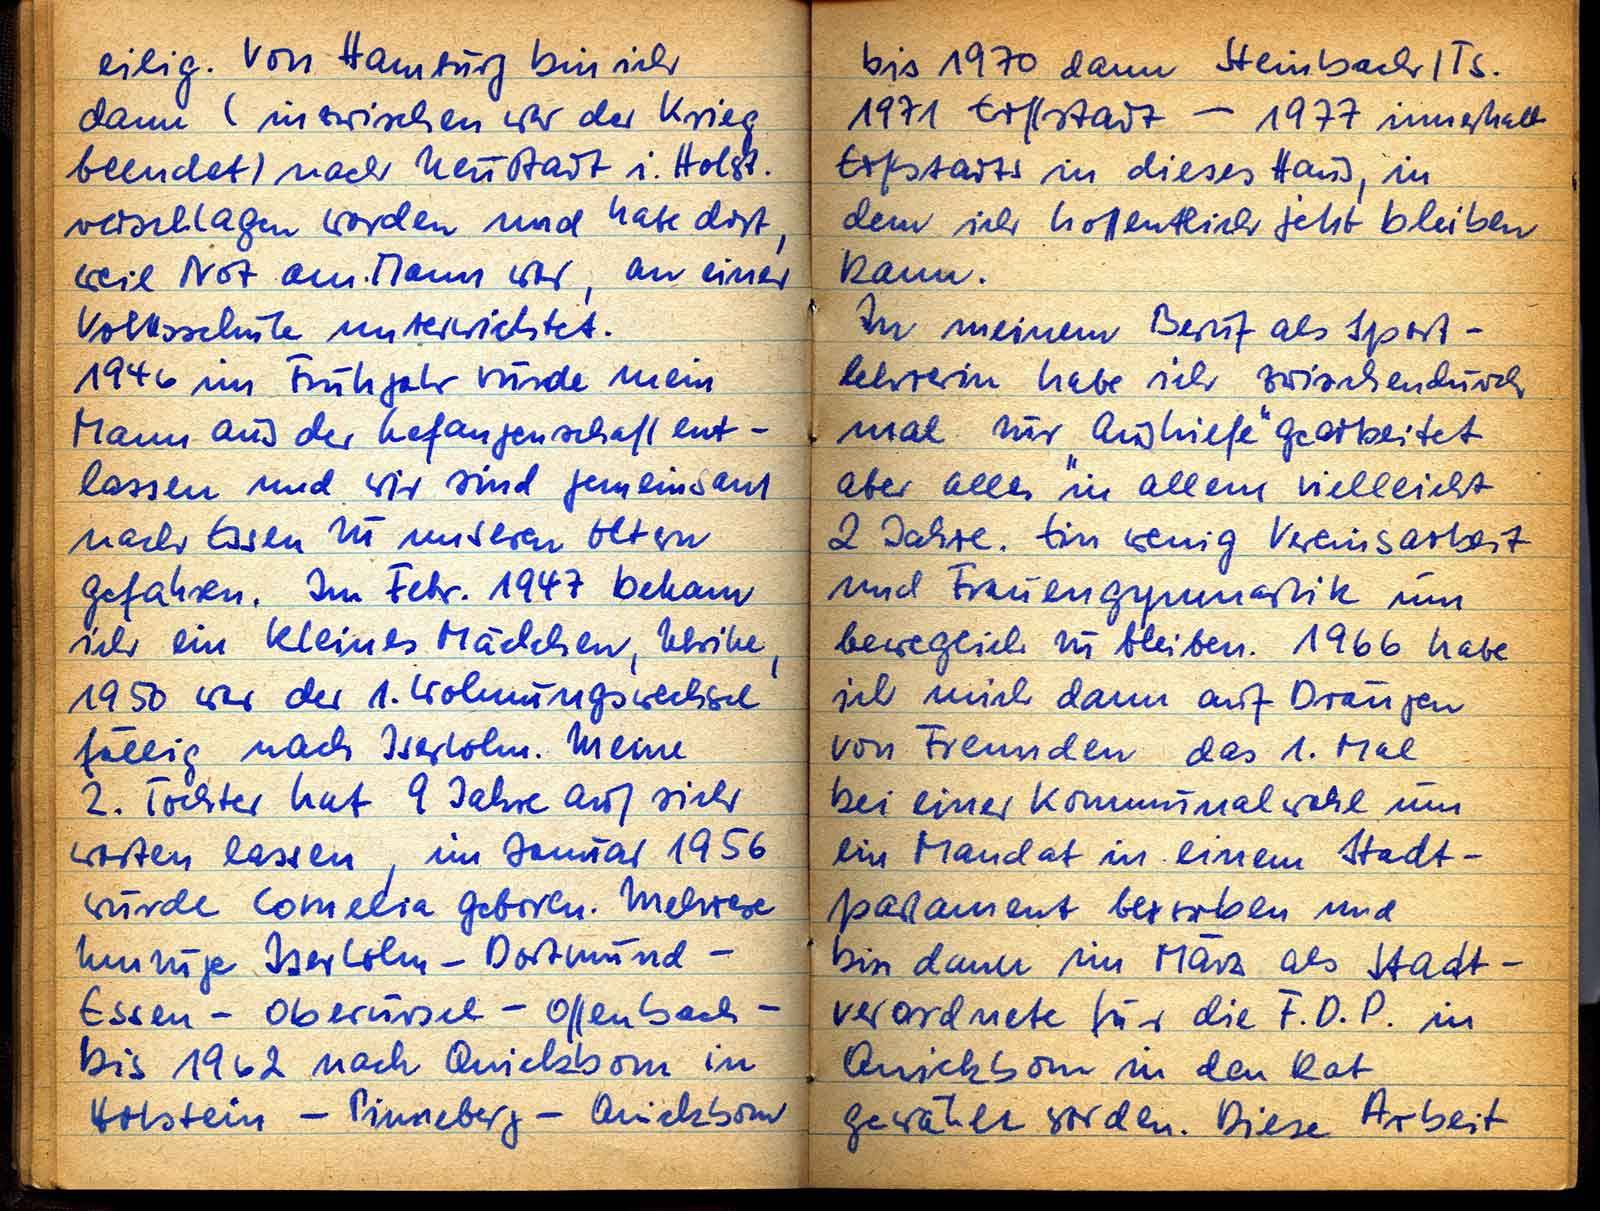 eilig. Von Hamburg bin ich
dann (inzwischen war der Krieg
beendet) nach Neustadt i. Holst.
verschlagen worden und habe dort,
weil Not am Mann war, an einer
Volksschule unterrichtet.
1946 im Frühjahr wurde mein
Mann aus der Gefangenschaft ent-
lassen und wir sind gemeinsam
nach Essen zu unseren Eltern
gefahren. Im Febr. 1947 bekam
ich ein kleines Mädchen, Ulrike,
1950 war der 1. Wohnungswechsel
fällig nach Iserlohn. Meine
2. Tochter hat 9 Jahre auf sich
warten lassen, im Januar 1956
wurde Cornelia geboren. Mehrere
Umzüge Iserlohn – Dortmund –
Essen – Oberursel – Offenbach –
bis 1962 nach Quickborn in
Holstein – Pinneberg – Quickborn
bis 1970 dann Steinbach/Ts.
1971 Erftstadt – 1977 innerhalb
Erftstadts in dieses Haus, in
dem ich hoffentlich jetzt bleiben
kann.
In meinem Beruf als Sport-
lehrerin habe ich zwischendurch
mal zur „Aushilfe" gearbeitet
aber alles in allem vielleicht
2 Jahre. Ein wenig Vereinsarbeit
und Frauengymnastik um
beweglich zu bleiben. 1966 habe
ich mich dann auf Drängen
von Freunden das 1. Mal
bei einer Kommunalwahl um
ein Mandat in einem Stadt-
parlament beworben und
bin dann im März als Stadt-
verordnete für die F.D.P. in
Quickborn in den Rat
gewählt worden. Diese Arbeit